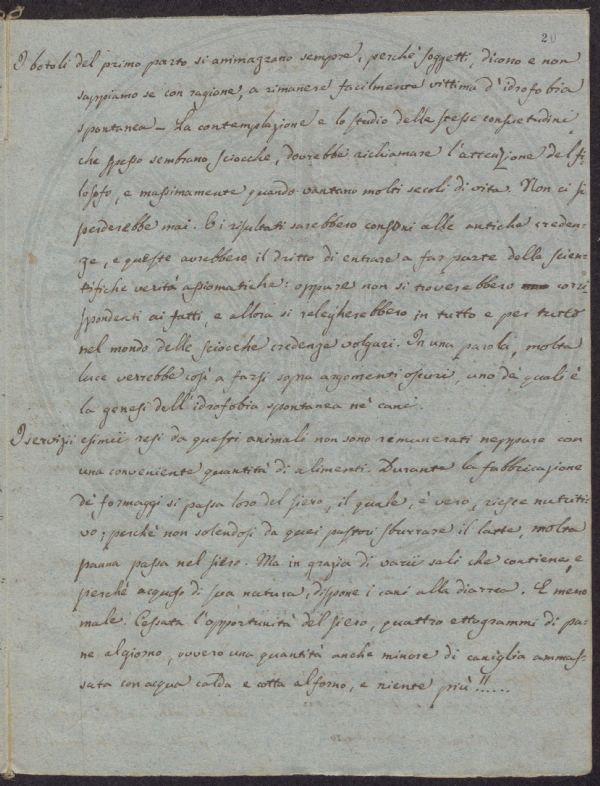 20
I botoli del primo parto si ammazzano sempre; perchè soggetti, dicono e non
sappiamo se con ragione, a rimanere facilmente vittima d'idrofobia
spontanea – La contemplazione e lo studio delle stesse consuetudini,
che spesso sembrano sciocche, dovrebbe richiamare l'attenzione del fi-
losofo, e massimamente quando vantano molti secoli di vita. Non ci si
perderebbe mai. O i risultati sarebbero consoni alle antiche creden-
ze, e queste avrebbero il dritto di entrare a far parte delle scien-
tifiche verità assiomatiche: oppure non si troverebbero corri-
spondenti ai fatti, e allora si relegherebbero in tutto e per tutto
nel mondo delle sciocche credenze volgari. In una parola, molta
luce verrebbe così a farsi sopra argomenti oscuri, uno de' quali è
la genesi dell'idrofobia spontanea ne' cani.
I servizi esimii resi da questi animali non sono remunerati neppure con
una conveniente quantità di alimenti. Durante la fabbricazione
de' formaggi si passa loro del siero, il quale, è vero, riesce nutriti-
vo; perchè non solendosi da quei pastori sburrare il latte, molta
panna passa nel siero. Ma in grazia di varii sali che contiene, e
perchè acquoso di sua natura, dispone i cani alla diarrea. E meno
male. Cessata l'opportunità del siero, quattro ettogrammi di pa-
ne al giorno, ovvero una quantità anche minore di caniglia ammas-
sata con acqua calda e cotta al forno, e niente più!!.....